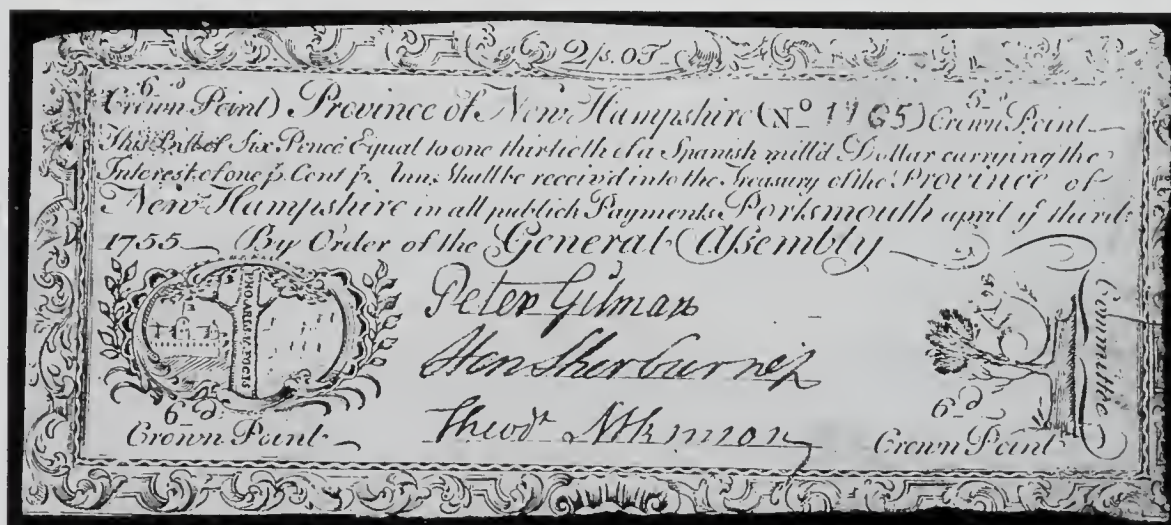 2/s. OT
6d 6d
Crown Point) Province of New Hampshire (No 1165) Crown Point
This Bill of Six Pence Equal to one thirtieth of a Spanish mill'd Dollar carrying the
Interest of one pr. Cent pr. Ann. Shall be receiv'd into the Treasury of the Province of
New-Hampshire in all publick Payments Portsmouth april ye third
1755 By Order of the General Assembly
Peter Gilman
Hen Sherburne
Theodr Atkinson
Committee
PRO ARIS ET FOCIS
6d
Crown Point
6d
Crown Point